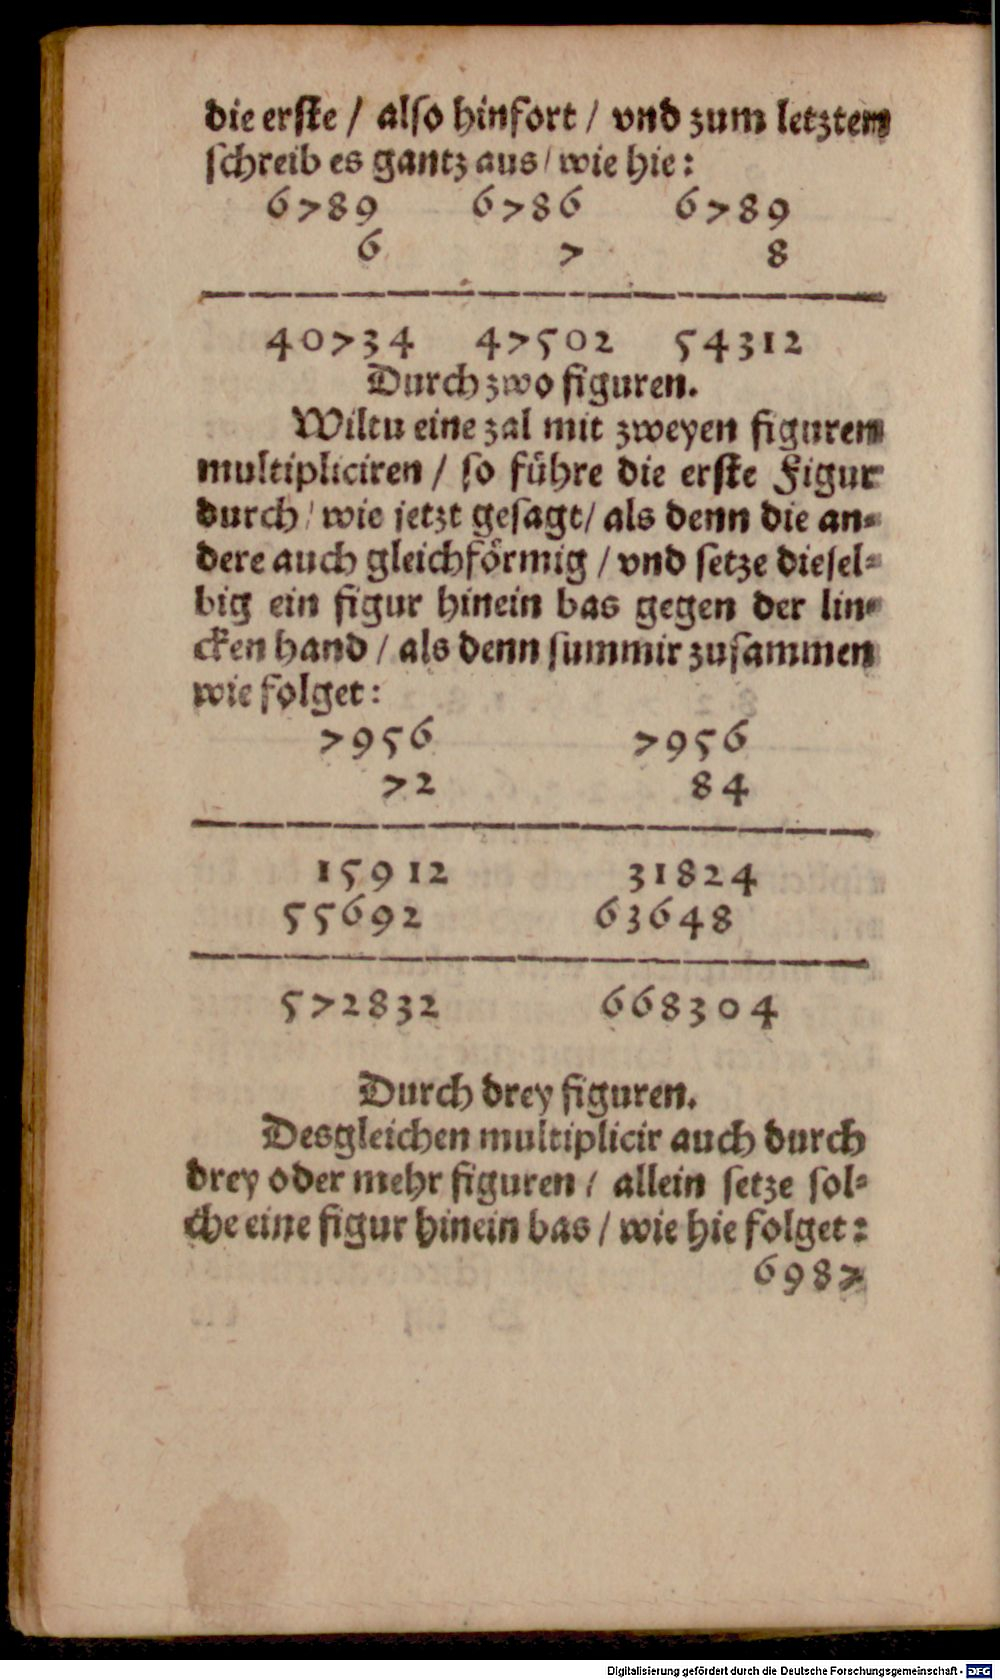 die erste / also hinfort / vnd zum letzten
schreib es gantz aus / wie hie:
6789 6786 6789
6 7 8
40734 47502 54312
Durch zwo figuren.
Wiltu eine zal mit zweyen figuren
multipliciren / so führe die erste Figur
durch / wie jetzt gesagt / als denn die an=
dere auch gleichförmig / vnd setze diesel=
big ein figur hinein bas gegen der lin=
cken hand / als denn summir zusammen
wie folget:
7956 7956
72 84
15912 31824
55692 63648
572832 668304
Durch drey figuren.
Desgleichen multiplicir auch durch
drey oder mehr figuren / allein setze sol=
che eine figur hinein bas / wie hie folget:
6987
Digitalisierung gefördert durch die Deutsche Forschungsgemeinschaft - DFG